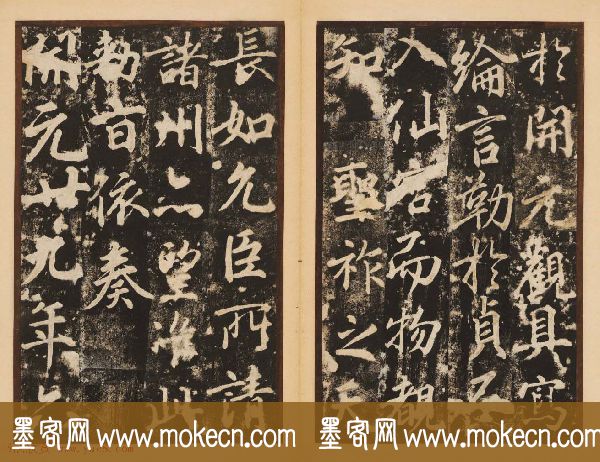 於開元觀具寫
綸言勒於貞石
入仙宮而物覩
知聖祚之天
長如允臣所請
諸州亦望准此
勅旨依奏
開元廿九年六
墨客网 www.mokecn.com 墨客网 www.mokecn.com